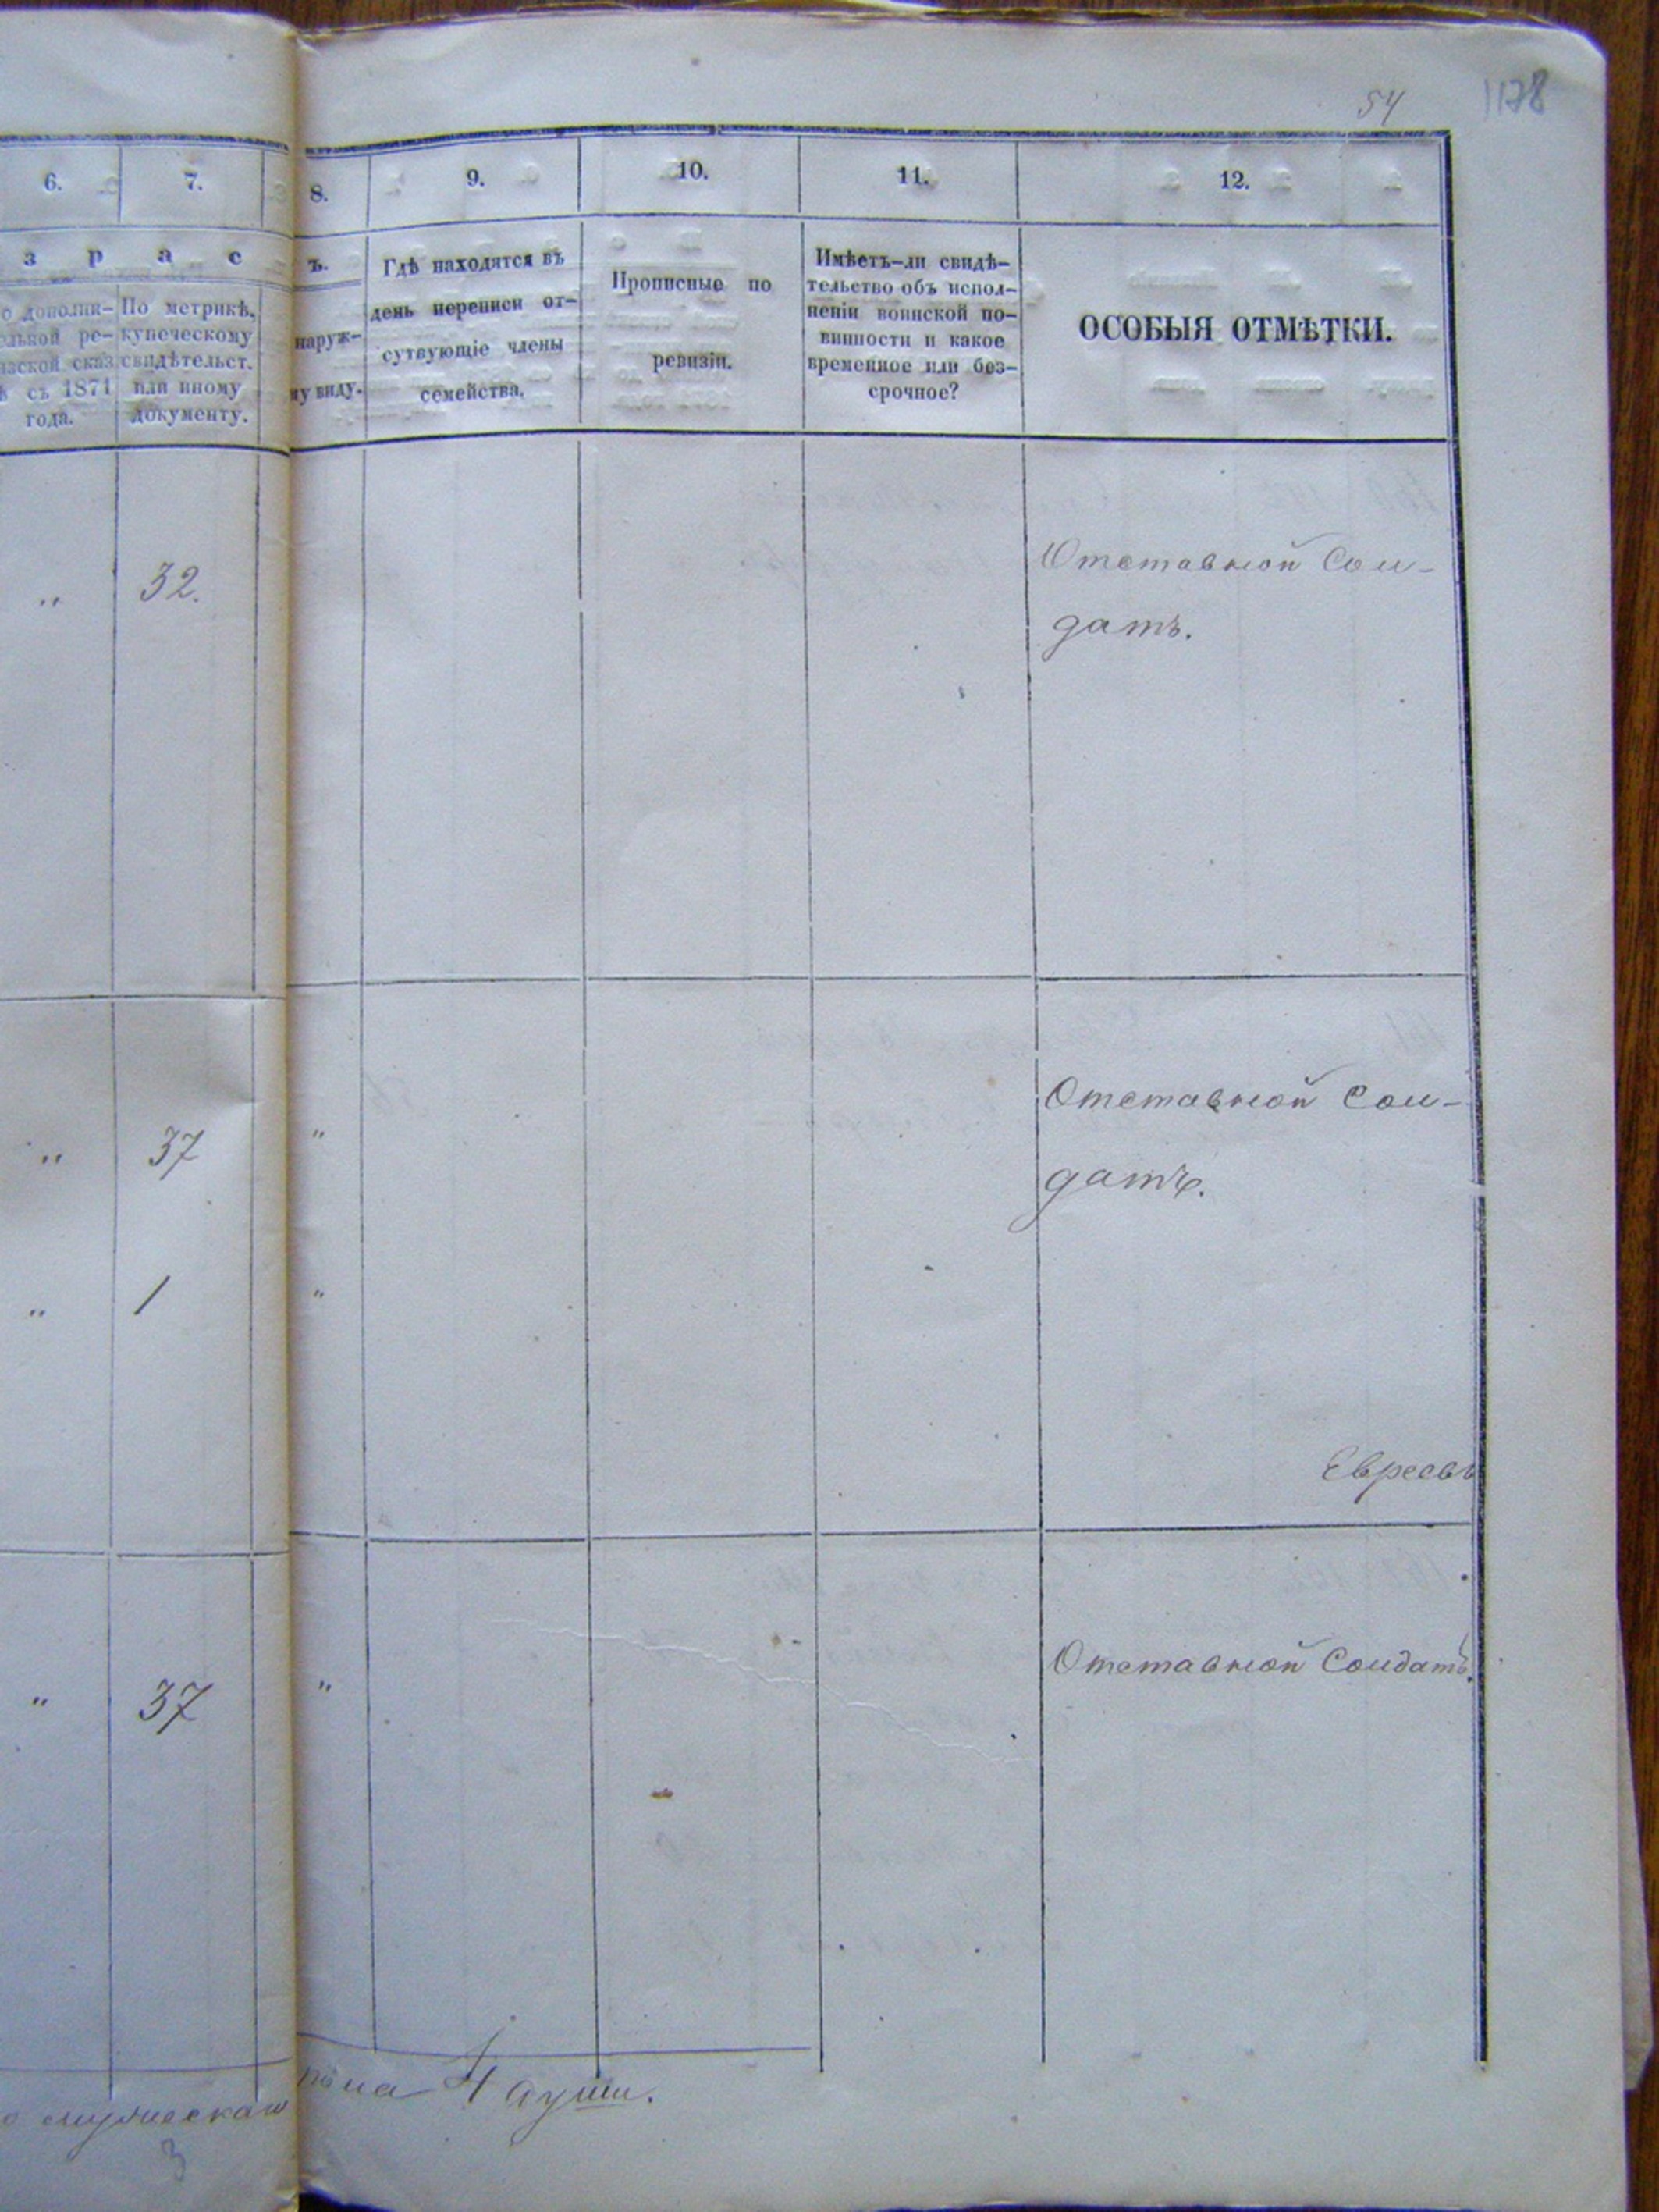 54 1178
6. 7. 8. 9. 10. 11. 12.
з р а с ъ.
о дополни-
ельной ре-
изской сказ
ѣ съ 1871
года.
По метрикѣ,
купеческому
свидѣтельст.
или иному
документу.
наруж-
му виду.
Гдѣ находятся въ
день переписи от-
сутвующіе члены
семейства.
Прописные по
ревизіи.
Имѣетъ-ли свидѣ-
тельство объ испол-
неніи воинской по-
винности и какое
временное или без-
срочное?
ОСОБЫЯ ОТМѢТКИ.
" 32. Отставной Сол-
датъ.
" 37 " Отставной Сол-
датъ.
" 1 "
Евреевъ
" 37 " Отставной Солдатъ.
о мужескаго пола 4 души.
3